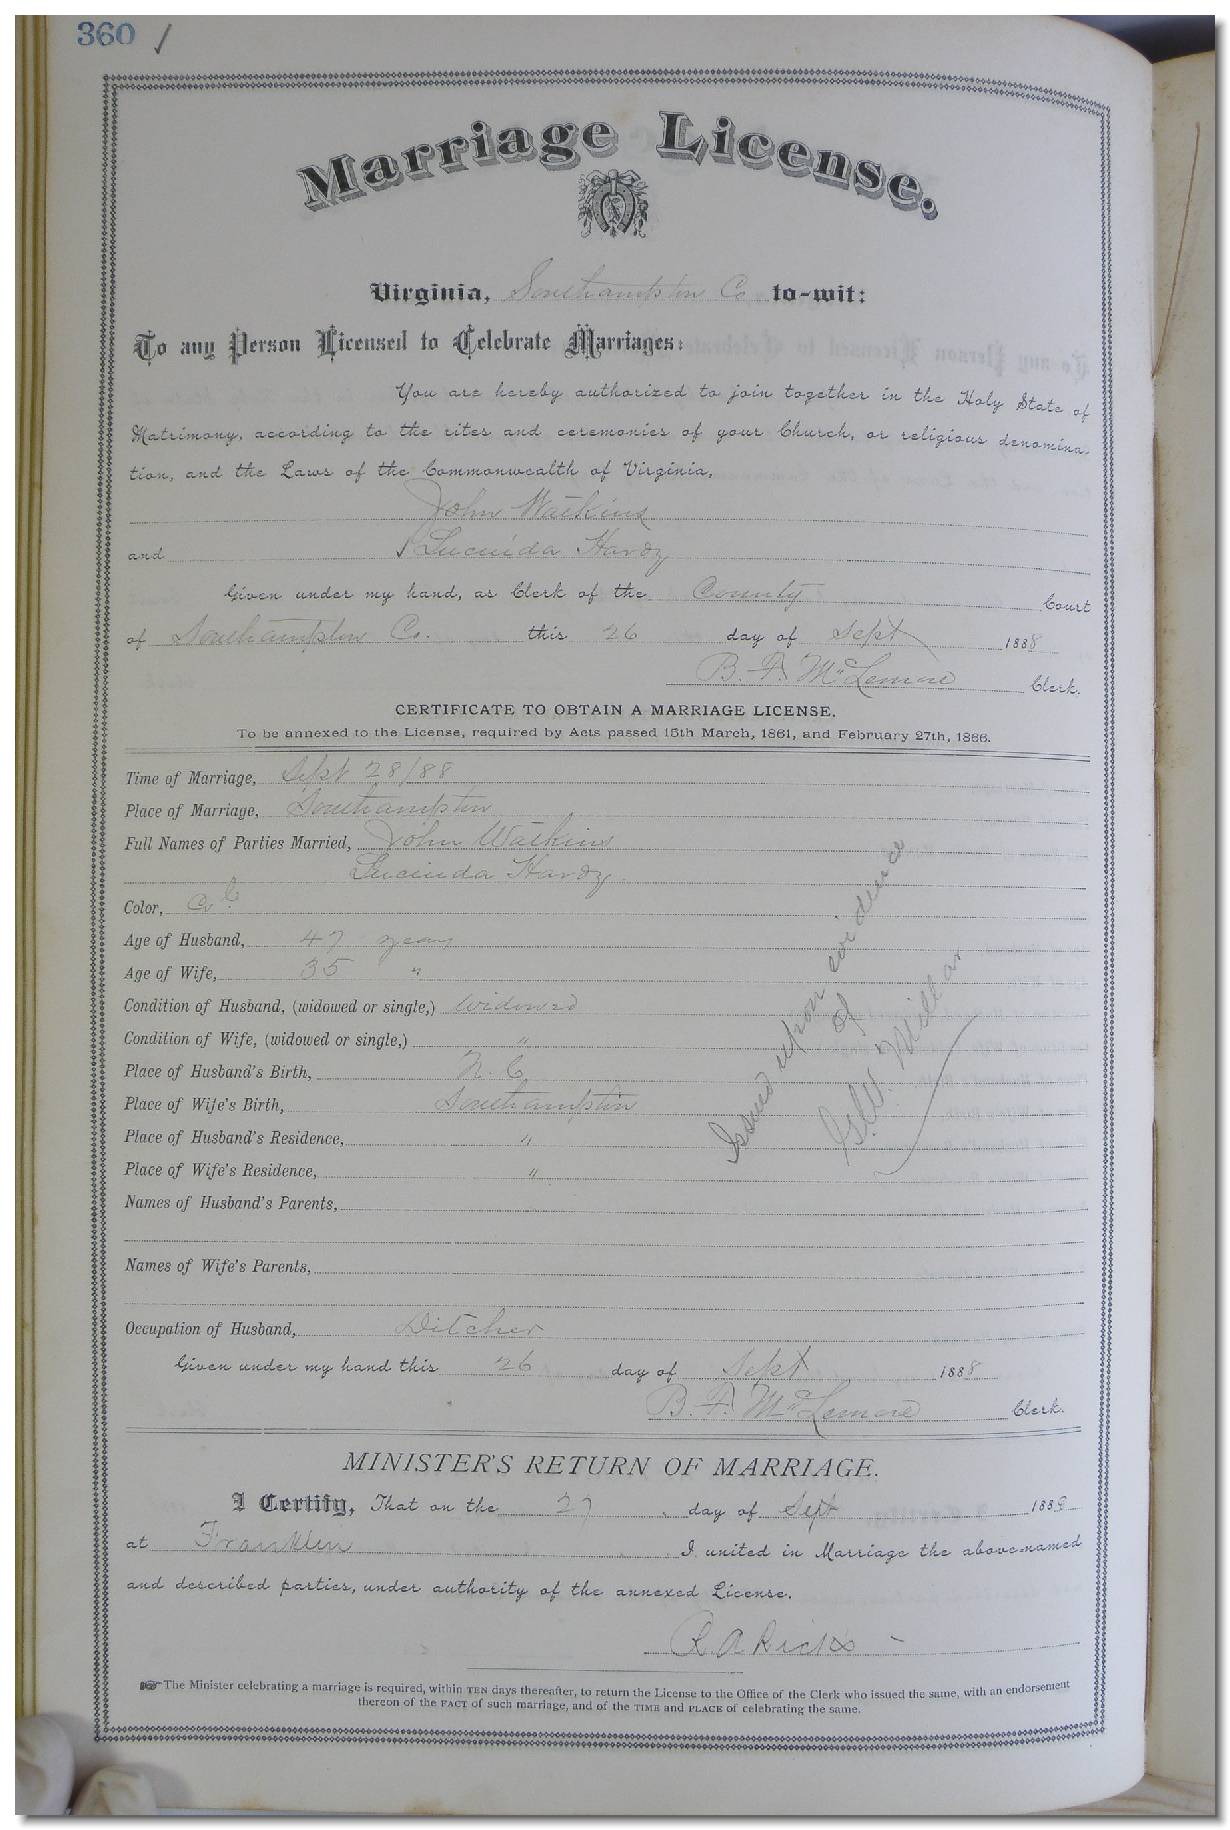 360 /
Marriage License.
Virginia, Southampton Co. to-wit:
To any Person Licensed to Celebrate Marriages:
You are hereby authorized to join together in the Holy State of
Matrimony, according to the rites and ceremonies of your Church, or religious denomina-
tion, and the Laws of the Commonwealth of Virginia,
John Watkins
and Lucinda Hardy
Given under my hand, as Clerk of the County Court
of Southampton Co. this 26 day of Sept 1888
B. F. McLemore Clerk.
CERTIFICATE TO OBTAIN A MARRIAGE LICENSE.
To be annexed to the License, required by Acts passed 15th March, 1861, and February 27th, 1866.
Time of Marriage, Sept 28/88
Place of Marriage, Southampton
Full Names of Parties Married, John Watkins
Lucinda Hardy
Color, Col
Age of Husband, 47 years
Age of Wife, 35 "
Condition of Husband, (widowed or single,) Widowed
Condition of Wife, (widowed or single,) "
Place of Husband's Birth, N. C
Place of Wife's Birth, Southampton
Place of Husband's Residence, "
Place of Wife's Residence, "
Names of Husband's Parents,
Names of Wife's Parents,
Occupation of Husband, Ditcher
Issued upon evidence
of
G.W. Millar
Given under my hand this 26 day of Sept 1888
B. F. McLemore Clerk.
MINISTER'S RETURN OF MARRIAGE.
I Certify, That on the 27 day of Sept 188
at Franklin I united in Marriage the above-named
and described parties, under authority of the annexed License.
R A Ricks
The Minister celebrating a marriage is required, within TEN days thereafter, to return the License to the Office of the Clerk who issued the same, with an endorsement
thereon of the FACT of such marriage, and of the TIME and PLACE of celebrating the same.